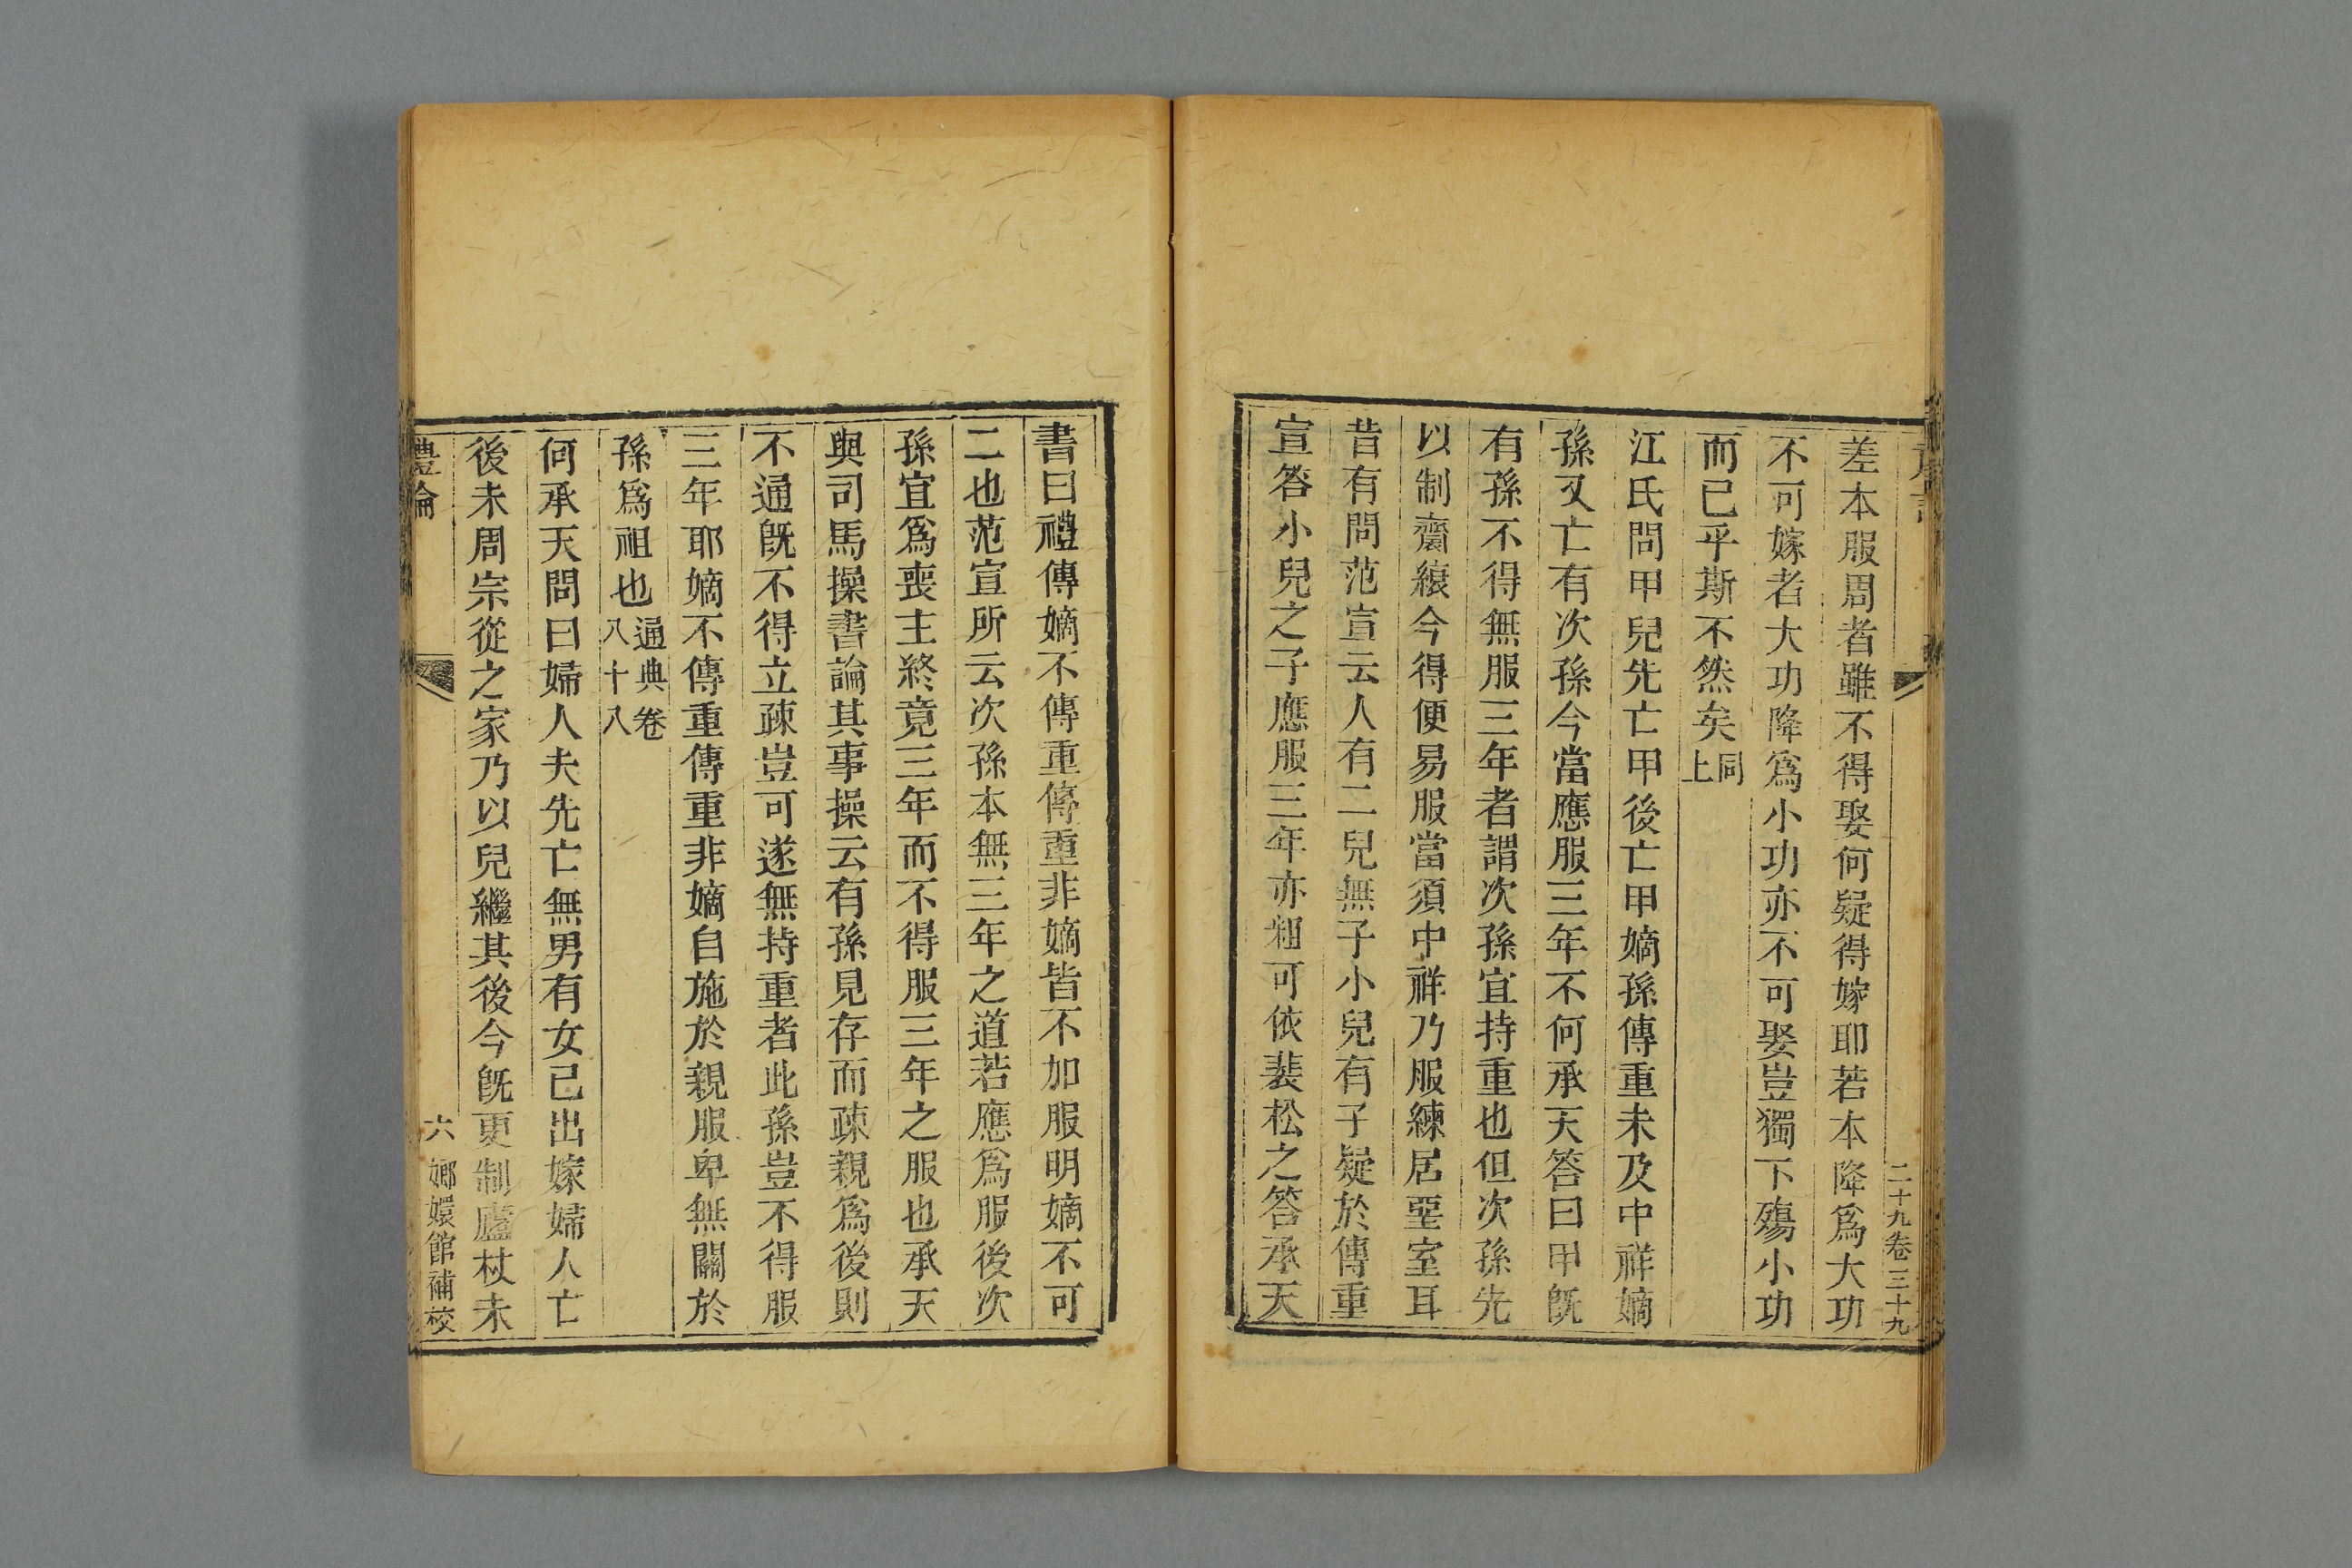 二十九卷三十九
差本服周者雖不得娶何疑得嫁耶若本降爲大功
不可嫁者大功降爲小功亦不可娶豈獨下殤小功
而已乎斯不然矣同上
江氏問甲兒先亡甲後亡甲嫡孫傳重未及中祥嫡
孫又亡有次孫今當應服三年不何承天答曰甲旣
有孫不得無服三年者謂次孫宜持重也但次孫先
以制齋縗今得便易服當須中祥乃服練居堊室耳
昔有問范宣云人有二兒無子小兒有子疑於傳重
宣答小兒之子應服三年亦粗可依裴松之答承天
書曰禮傳嫡不傳重傳重非嫡皆不加服明嫡不可
二也范宣所云次孫本無三年之道若應爲服後次
孫宜爲喪主終竟三年而不得服三年之服也承天
與司馬操書論其事操云有孫見存而疎親爲後則
不通旣不得立疎豈可遂無持重者此孫豈不得服
三年耶嫡不傳重傳重非嫡自施於親服卑無關於
孫爲祖也通典卷八十八
何承天問曰婦人夫先亡無男有女已出嫁婦人亡
後未周宗從之家乃以兒繼其後今旣更制廬杖未
禮論
六
嫏嬛館補校